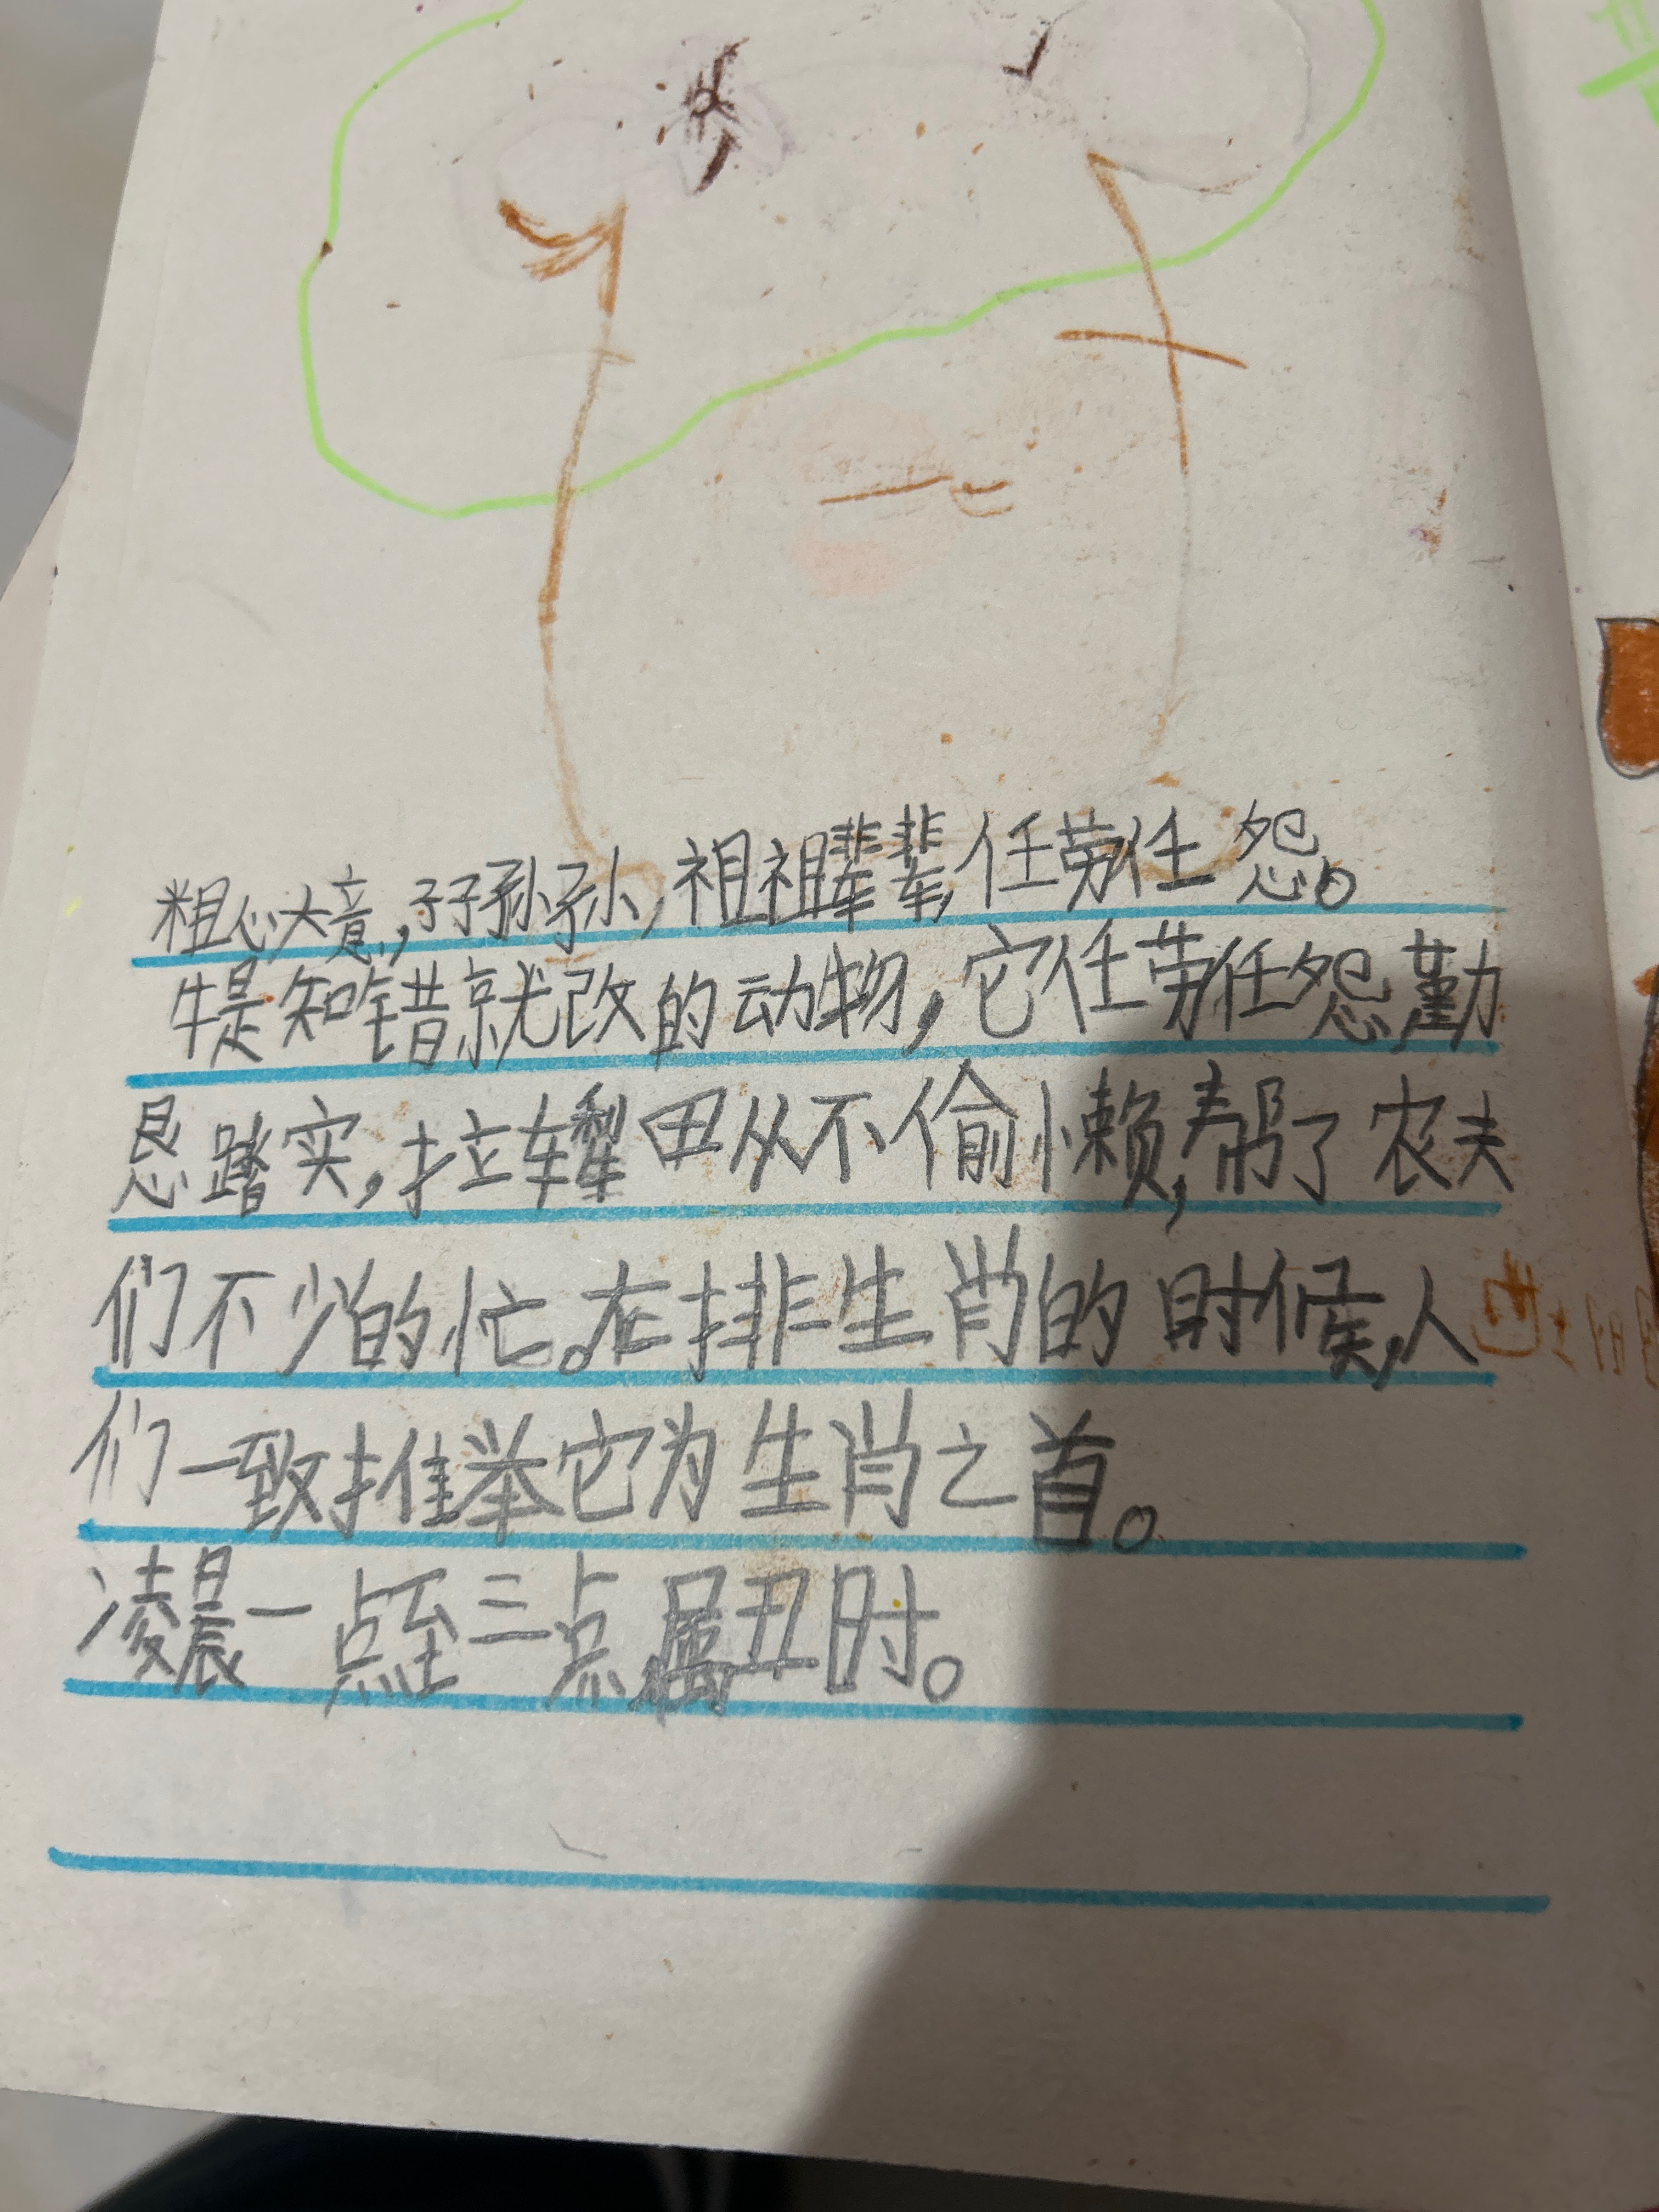 粗心大意,子子孙孙,祖祖辈辈,任劳任怨。
牛是知错就改的动物,它任劳任怨勤
恳踏实,拉车犁田从不偷懒,帮了农夫
们不少的忙。在排生肖的时候,人
们一致推举它为生肖之首。
凌晨一点至三点属丑时。